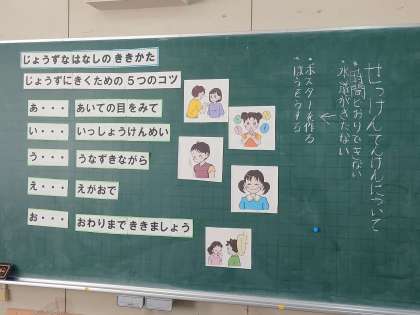 じょうずなはなしの ききかた
じょうずにきくための 5つのコツ
あ・・・・ あいての目をみて
い・・・・ いっしょうけんめい
う・・・・ うなずきながら
え・・・・ えがおで
お・・・・ おわりまで ききましょう
せっけんてんけんについて
・時間どおりできない
・水道がきたない
↓
・ポスターを作る
・ほうそうする